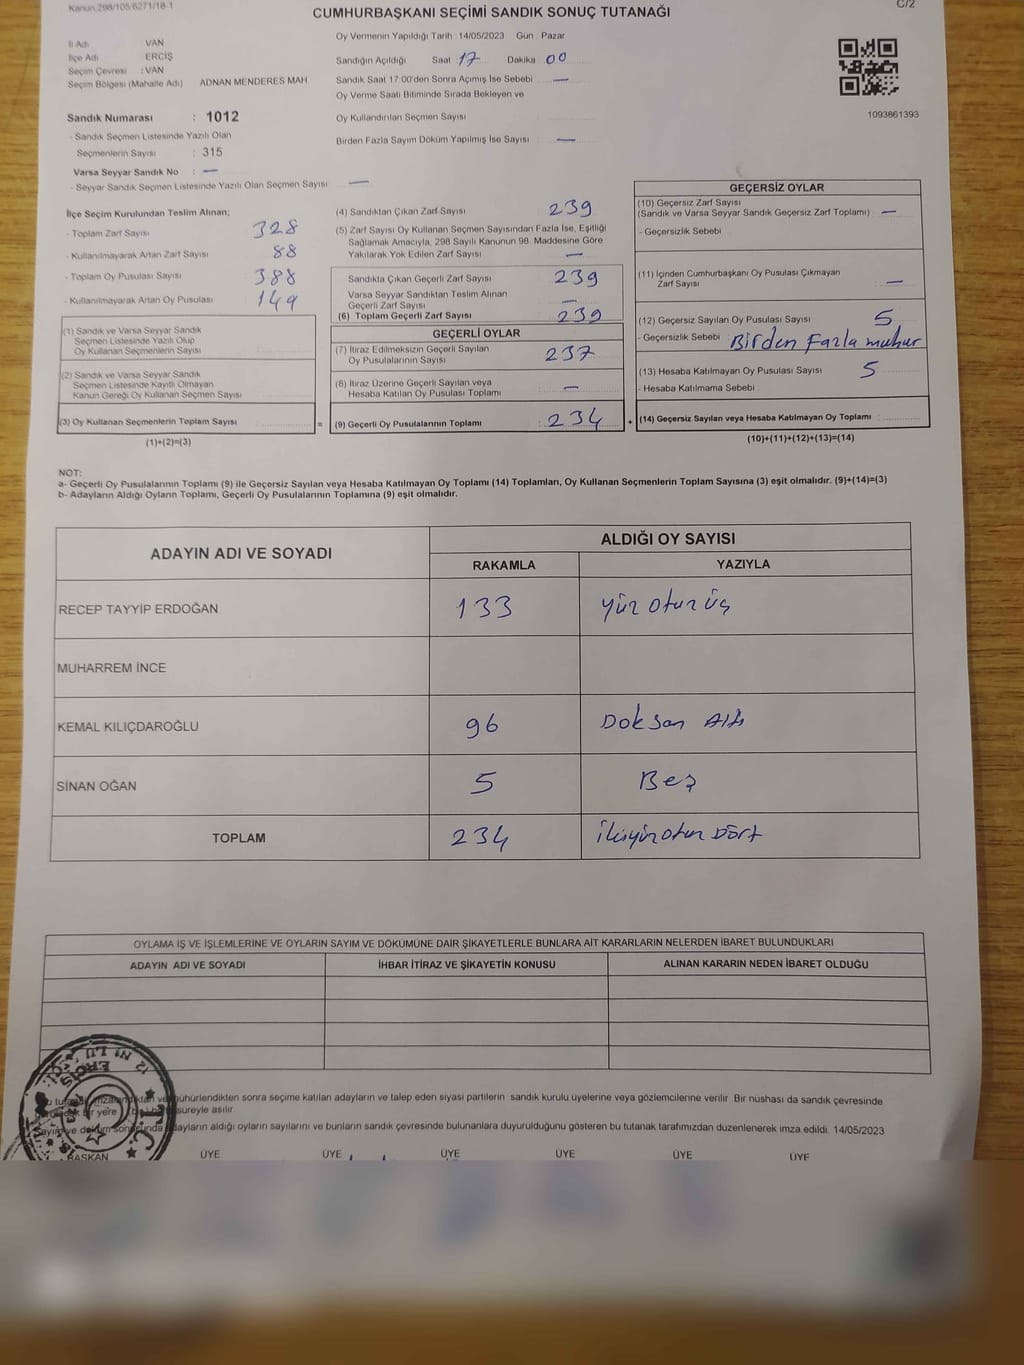 Kanun:298/105,6271/18-1
C/2
CUMHURBAŞKANI SEÇİMİ SANDIK SONUÇ TUTANAĞI
İl Adı VAN
İlçe Adı ERCİŞ
Seçim Çevresi : VAN
Seçim Bölgesi (Mahalle Adı) ADNAN MENDERES MAH
Sandık Numarası : 1012
- Sandık Seçmen Listesinde Yazılı Olan
Seçmenlerin Sayısı : 315
Varsa Seyyar Sandık No : —
- Seyyar Sandık Seçmen Listesinde Yazılı Olan Seçmen Sayısı —
Oy Vermenin Yapıldığı Tarih : 14/05/2023 Gün : Pazar
Sandığın Açıldığı Saat 17 Dakika 00
Sandık Saat 17:00'den Sonra Açımış İse Sebebi —
Oy Verme Saati Bitiminde Sırada Bekleyen ve
Oy Kullandırılan Seçmen Sayısı
Birden Fazla Sayım Döküm Yapılmış İse Sayısı : —
1093861393
İlçe Seçim Kurulundan Teslim Alınan;
- Toplam Zarf Sayısı 328
- Kullanılmayarak Artan Zarf Sayısı 88
- Toplam Oy Pusulası Sayısı 388
- Kullanılmayarak Artan Oy Pusulası 149
(1) Sandık ve Varsa Seyyar Sandık
Seçmen Listesinde Yazılı Olup
Oy Kullanan Seçmenlerin Sayısı
(2) Sandık ve Varsa Seyyar Sandık
Seçmen Listesinde Kayıtlı Olmayan
Kanun Gereği Oy Kullanan Seçmen Sayısı
(3) Oy Kullanan Seçmenlerin Toplam Sayısı
(1)+(2)=(3)
=
(4) Sandıktan Çıkan Zarf Sayısı : 239
(5) Zarf Sayısı Oy Kullanan Seçmen Sayısından Fazla İse, Eşitliği
Sağlamak Amacıyla, 298 Sayılı Kanunun 98. Maddesine Göre
Yakılarak Yok Edilen Zarf Sayısı —
Sandıkta Çıkan Geçerli Zarf Sayısı 239
Varsa Seyyar Sandıktan Teslim Alınan
Geçerli Zarf Sayısı —
(6) Toplam Geçerli Zarf Sayısı 239
GEÇERLİ OYLAR
(7) İtiraz Edilmeksizin Geçerli Sayılan
Oy Pusulalarının Sayısı 237
(8) İtiraz Üzerine Geçerli Sayılan veya
Hesaba Katılan Oy Pusulası Toplamı —
(9) Geçerli Oy Pusulalarının Toplamı 234
+
GEÇERSİZ OYLAR
(10) Geçersiz Zarf Sayısı
(Sandık ve Varsa Seyyar Sandık Geçersiz Zarf Toplamı) —
- Geçersizlik Sebebi
(11) İçinden Cumhurbaşkanı Oy Pusulası Çıkmayan
Zarf Sayısı —
(12) Geçersiz Sayılan Oy Pusulası Sayısı 5
- Geçersizlik Sebebi Birden Fazla muhur
(13) Hesaba Katılmayan Oy Pusulası Sayısı 5
- Hesaba Katılmama Sebebi
(14) Geçersiz Sayılan veya Hesaba Katılmayan Oy Toplamı
(10)+(11)+(12)+(13)=(14)
NOT:
a- Geçerli Oy Pusulalarının Toplamı (9) ile Geçersiz Sayılan veya Hesaba Katılmayan Oy Toplamı (14) Toplamları, Oy Kullanan Seçmenlerin Toplam Sayısına (3) eşit olmalıdır. (9)+(14)=(3)
b- Adayların Aldığı Oyların Toplamı, Geçerli Oy Pusulalarının Toplamına (9) eşit olmalıdır.
ADAYIN ADI VE SOYADI ALDIĞI OY SAYISI
RAKAMLA YAZIYLA
RECEP TAYYİP ERDOĞAN 133 yüz otuz üç
MUHARREM İNCE
KEMAL KILIÇDAROĞLU 96 Doksan Altı
SİNAN OĞAN 5 Beş
TOPLAM 234 ikiyüzotuz Dört
OYLAMA İŞ VE İŞLEMLERİNE VE OYLARIN SAYIM VE DÖKÜMÜNE DAİR ŞİKAYETLERLE BUNLARA AİT KARARLARIN NELERDEN İBARET BULUNDUKLARI
ADAYIN ADI VE SOYADI İHBAR İTİRAZ VE ŞİKAYETİN KONUSU ALINAN KARARIN NEDEN İBARET OLDUĞU
ERCİŞ
T.C.
mühürlendikten sonra seçime katılan adayların ve talep eden siyasi partilerin sandık kurulu üyelerine veya gözlemcilerine verilir. Bir nüshası da sandık çevresinde
bir yere süreyle asılır.
adayların aldığı oyların sayılarını ve bunların sandık çevresinde bulunanlara duyurulduğunu gösteren bu tutanak tarafımızdan düzenlenerek imza edildi. 14/05/2023
BAŞKAN ÜYE ÜYE ÜYE ÜYE ÜYE ÜYE